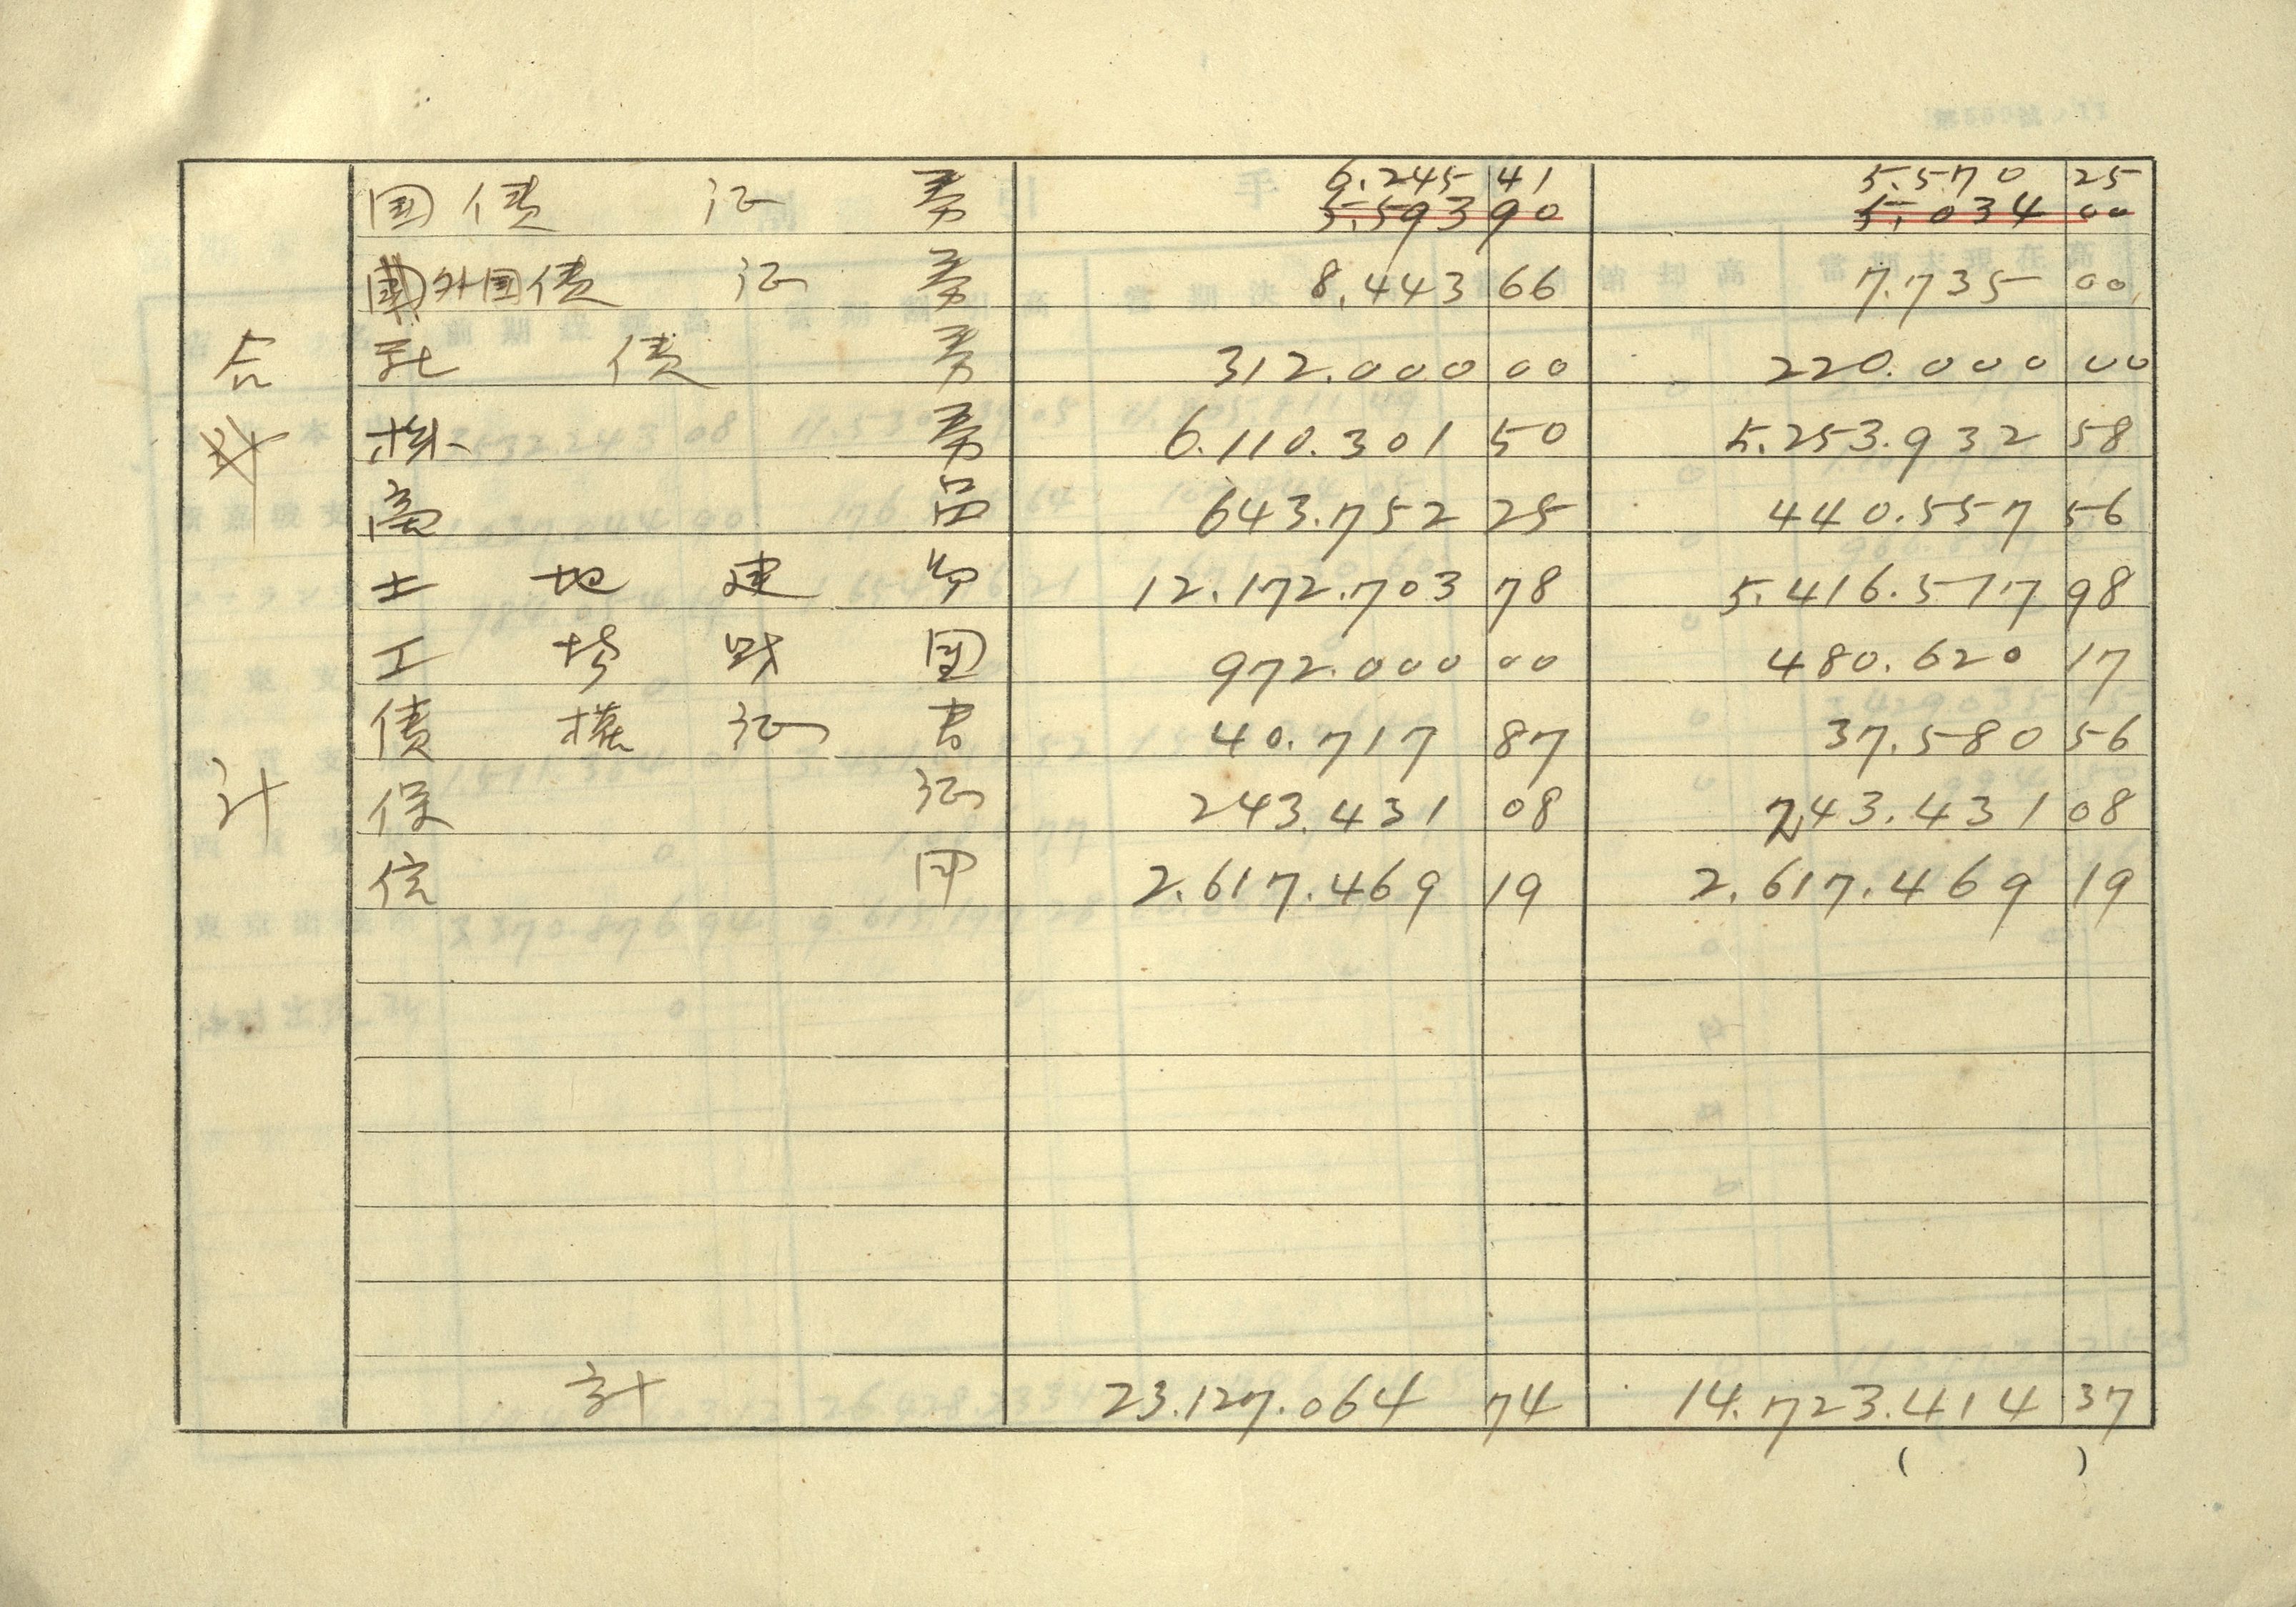 合計
国債証券 6.245 41 5.570 25
5.593 90 5.034 00
外国債証券 8.443 66 7.735 00
社債券 312.000 00 220.000 00
株券 6.110.301 50 5.253.932 58
商品 643.752 25 440.557 56
土地建物 12.172.703 78 5.416.517 98
工場財団 972.000 00 480.620 17
債権証書 40.717 87 37.580 56
保証 243.431 08 243.431 08
信用 2.617.469 19 2.617.469 19
計 23.127.064 74 14.723.414 37
( )